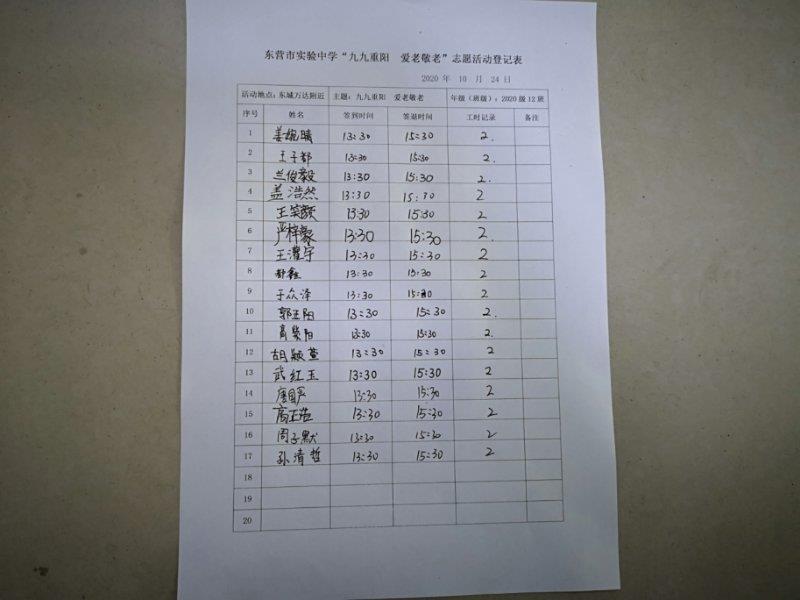 东营市实验中学“九九重阳 爱老敬老”志愿活动登记表
2020 年 10 月 24 日
活动地点：东城万达附近 主题：九九重阳 爱老敬老 年级（班级）：2020级12班
序号 姓名 签到时间 签退时间 工时记录 备注
1 姜婉晴 13:30 15:30 2.
2 王子都 13:30 15:30 2.
3 兰俊毅 13:30 15:30 2.
4 盖浩然 13:30 15:30 2
5 王笑颜 13:30 15:30 2
6 严梓豪 13:30 15:30 2.
7 王濯宇 13:30 15:30 2
8 13:30 15:30 2
9 于众泽 13:30 15:30 2
10 郭玉阳 13:30 15:30 2.
11 13:30 15:30 2.
12 胡颖萱 13:30 15:30 2
13 武红玉 13:30 15:30 2
14 13:30 15:30 2
15 高正浩 13:30 15:30 2
16 周子默 13:30 15:30 2
17 孙清哲 13:30 15:30 2
18
19
20